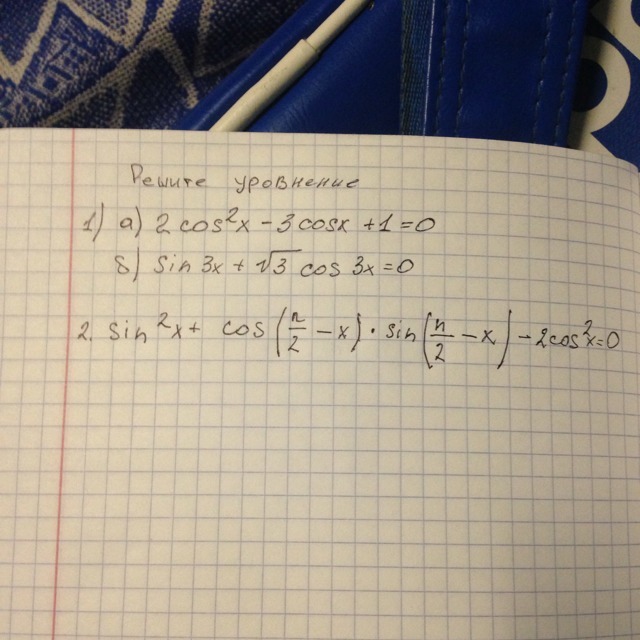 Решите уровнение
1) а) 2 cos²x - 3 cosx + 1 = 0
б) sin 3x + √3 cos 3x = 0
2. sin²x + cos(π/2 - x) · sin(π/2 - x) - 2cos²x = 0